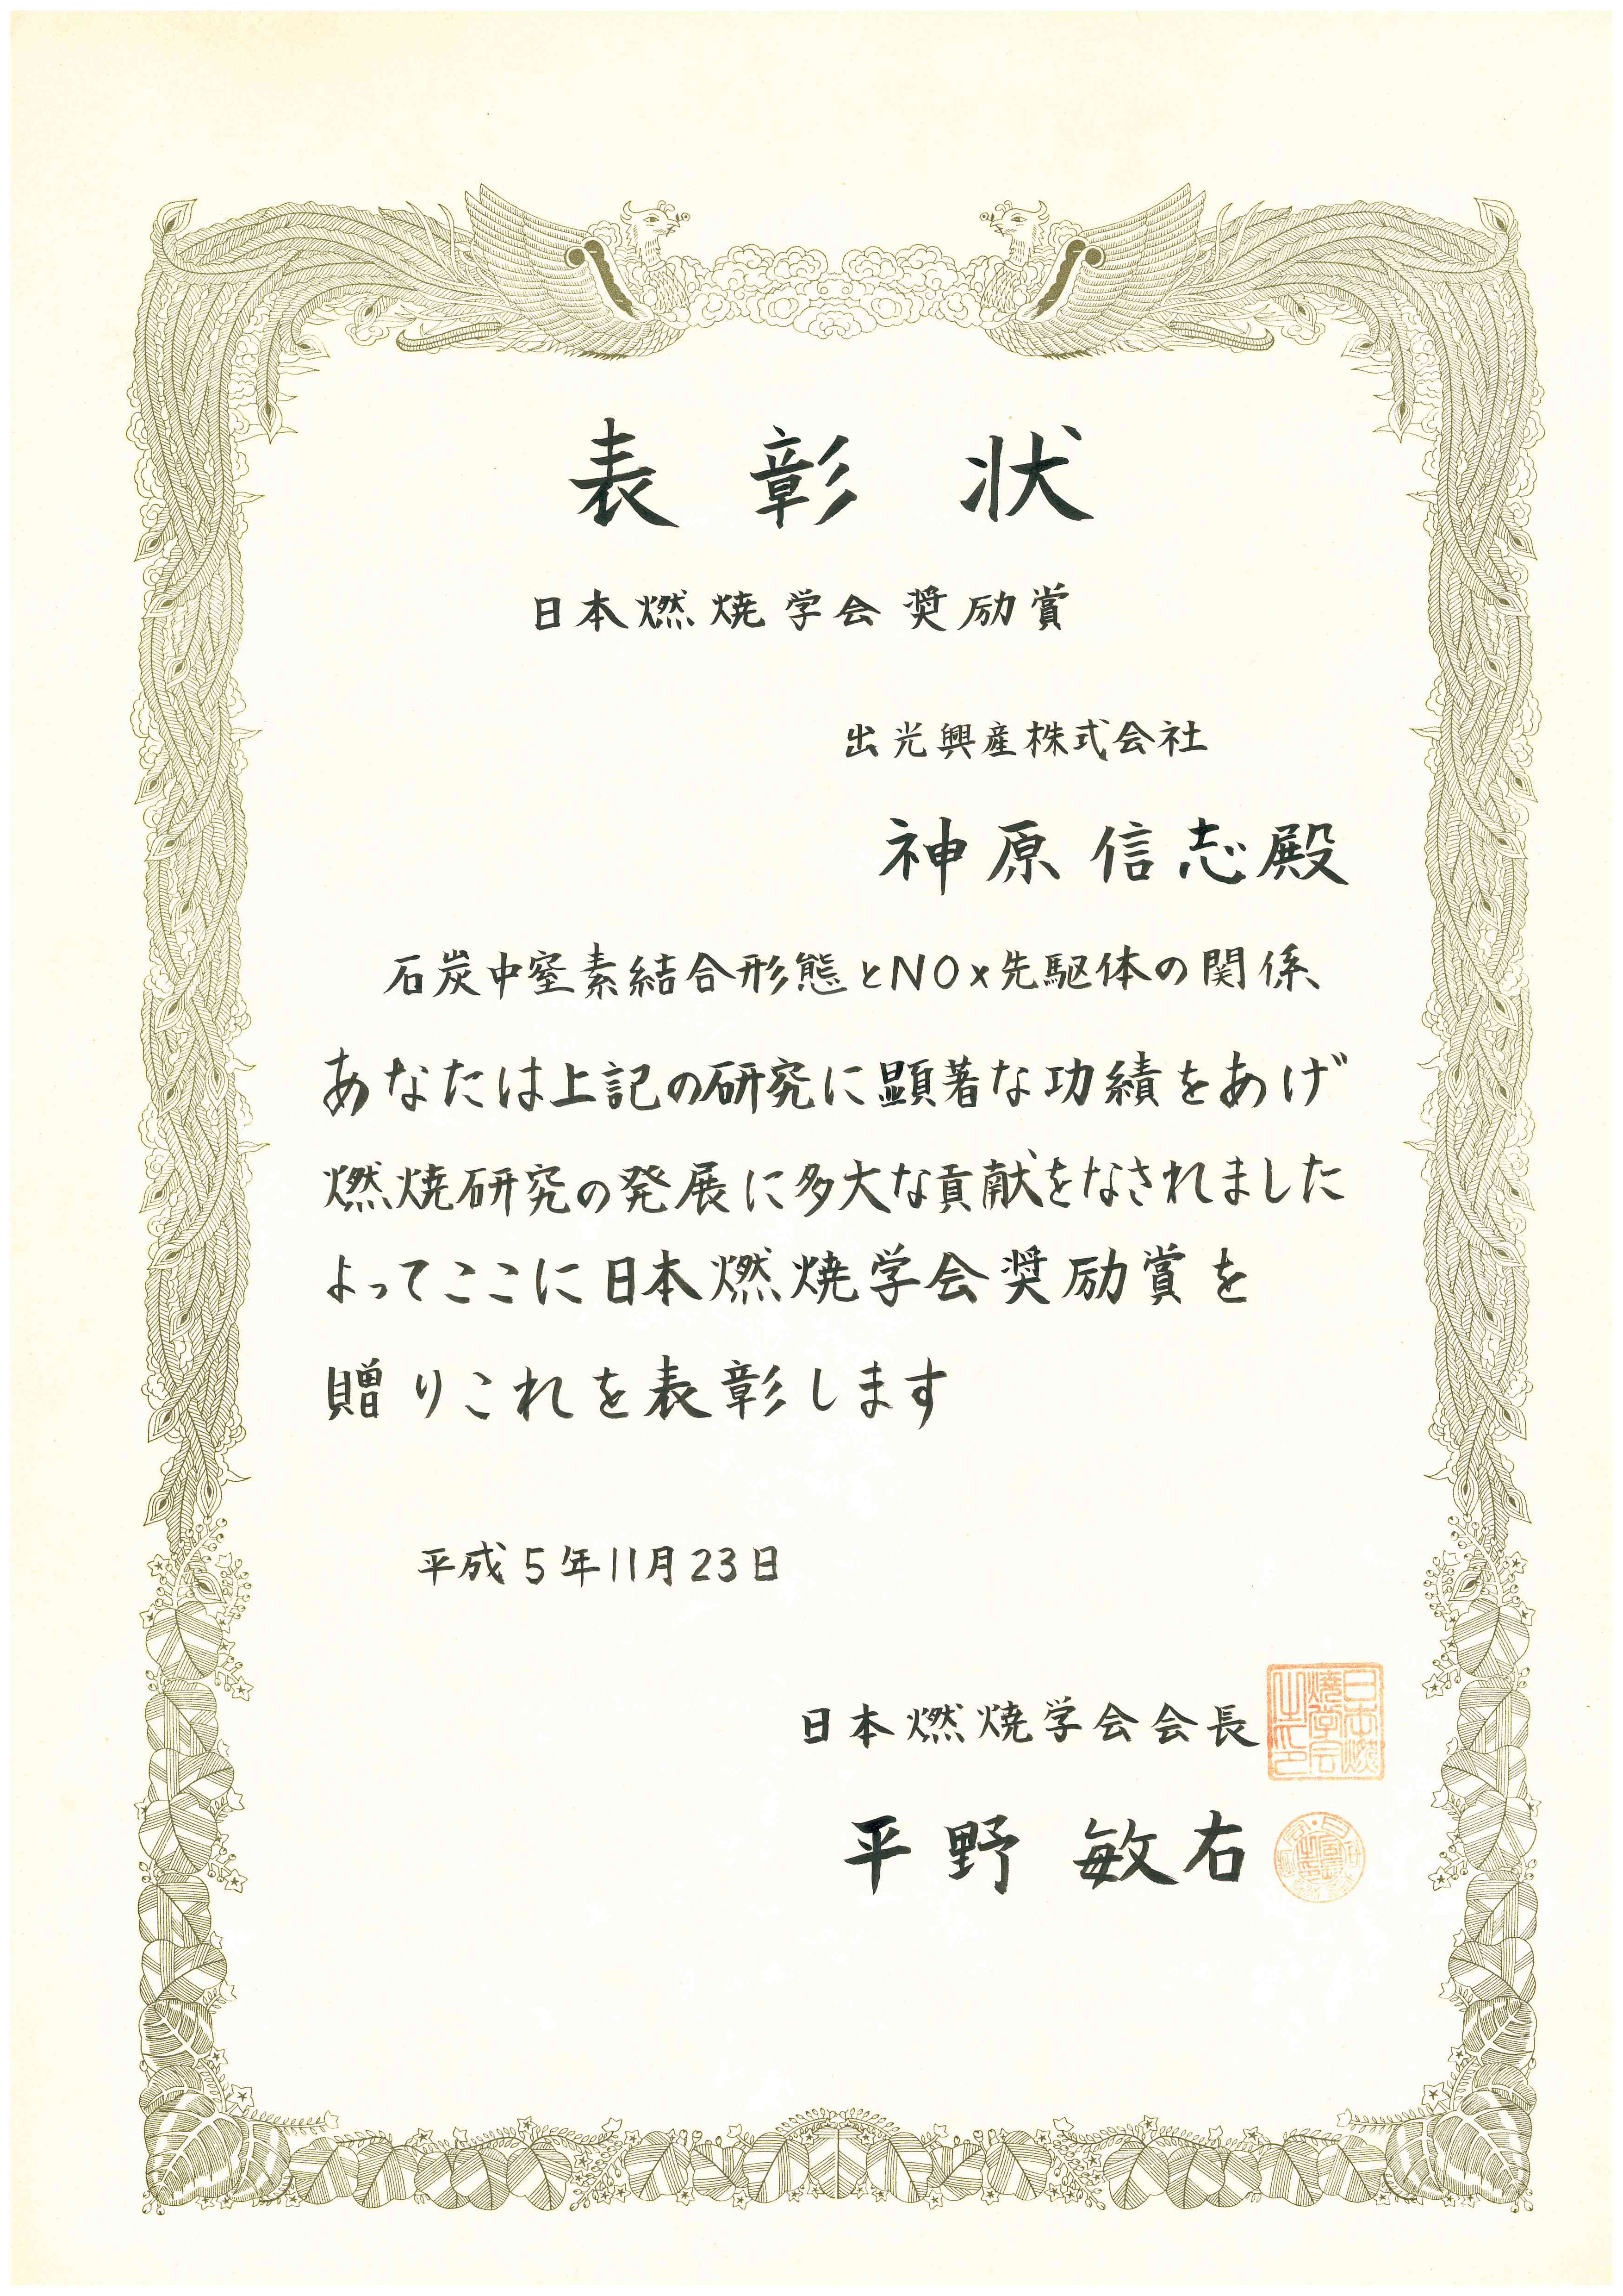 表彰状
日本燃焼学会奨励賞
出光興産株式会社
神原信志殿
石炭中窒素結合形態とNOx先駆体の関係、
あなたは上記の研究に顕著な功績をあげ
燃焼研究の発展に多大な貢献をなされました
よってここに日本燃焼学会奨励賞を
贈りこれを表彰します
平成5年11月23日
日本燃焼学会会長
日本燃焼学会之印
平野 敏右